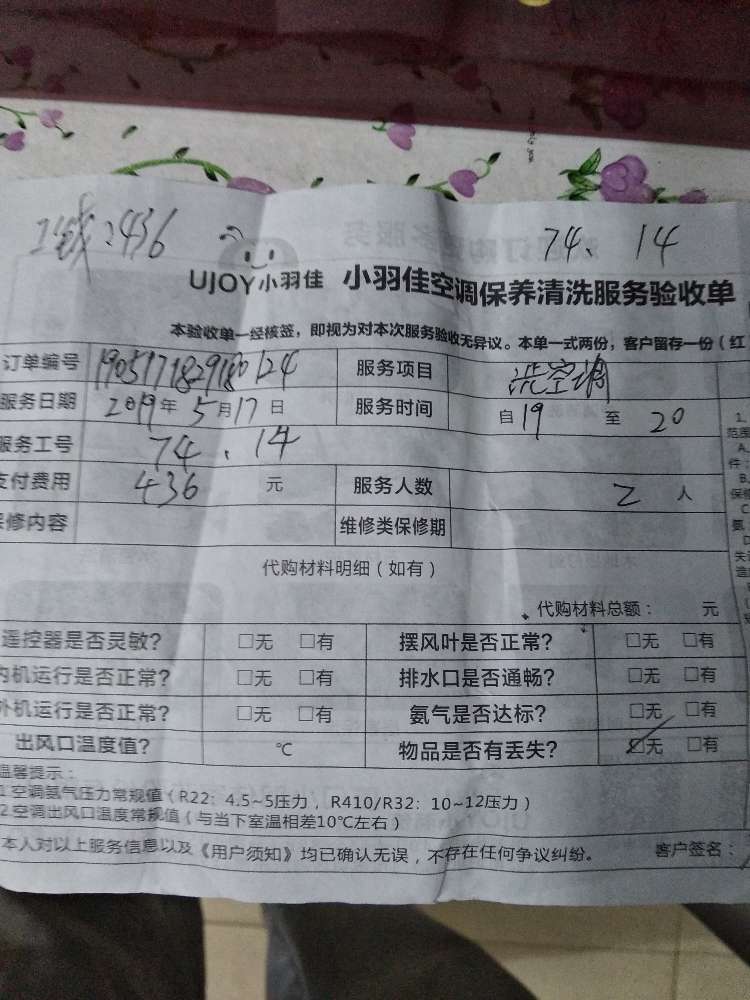 工钱:436 74 14
UJOY小羽佳 小羽佳空调保养清洗服务验收单
本验收单一经核签,即视为对本次服务验收无异议。本单一式两份,客户留存一份(红
订单编号 1905171829180124 服务项目 洗空调
服务日期 2019年5月17日 服务时间 自19至20
服务工号 74、14
支付费用 436 元 服务人数 2 人
保修内容 维修类保修期
代购材料明细(如有)
代购材料总额: 元
遥控器是否灵敏? □无 □有 摆风叶是否正常? □无 □有
内机运行是否正常? □无 □有 排水口是否通畅? □无 □有
外机运行是否正常? □无 □有 氨气是否达标? □无 □有
出风口温度值? ℃ 物品是否有丢失? ☑无 □有
温馨提示:
1.空调氨气压力常规值(R22:4.5~5压力,R410/R32:10~12压力)
2.空调出风口温度常规值(与当下室温相差10℃左右)
本人对以上服务信息以及《用户须知》均已确认无误,不存在任何争议纠纷。 客户签名: